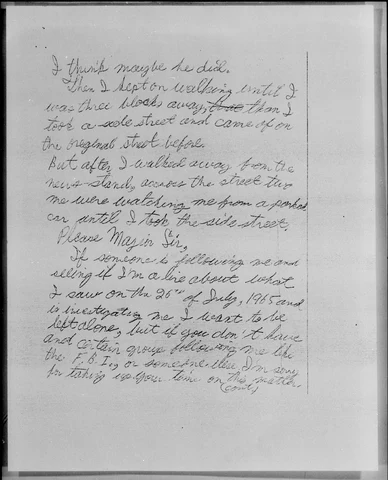 I think maybe he did.
Then I kept on walking until I
was three blocks away, than I
took a side street and came up on
the original street before.
But after I walked away from the
news stand, accross the street two
me were watching me from a parked
car until I took the side street,
Please Major Sir,
If someone is following me and
seeing if I'm a lire about what
I saw on the 25th of July, 1965 and
is investigating me I want to be
left alone, but if you don't have
and certain group following me like
the F.B.I., or someone else I'm sorry
for taking up your time on this matter.
(cont)